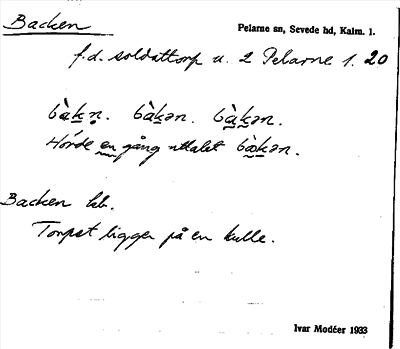 Backen
Pelarne sn, Sevede hd, Kalm. l.
f.d. soldattorp u. 2 Pelarne 1.20
bàkn̥. bàkən. bàkən.
Hörde en gång uttalet bàkən.
Backen bb.
Torpet ligger på en kulle.
Ivar Modéer 1933